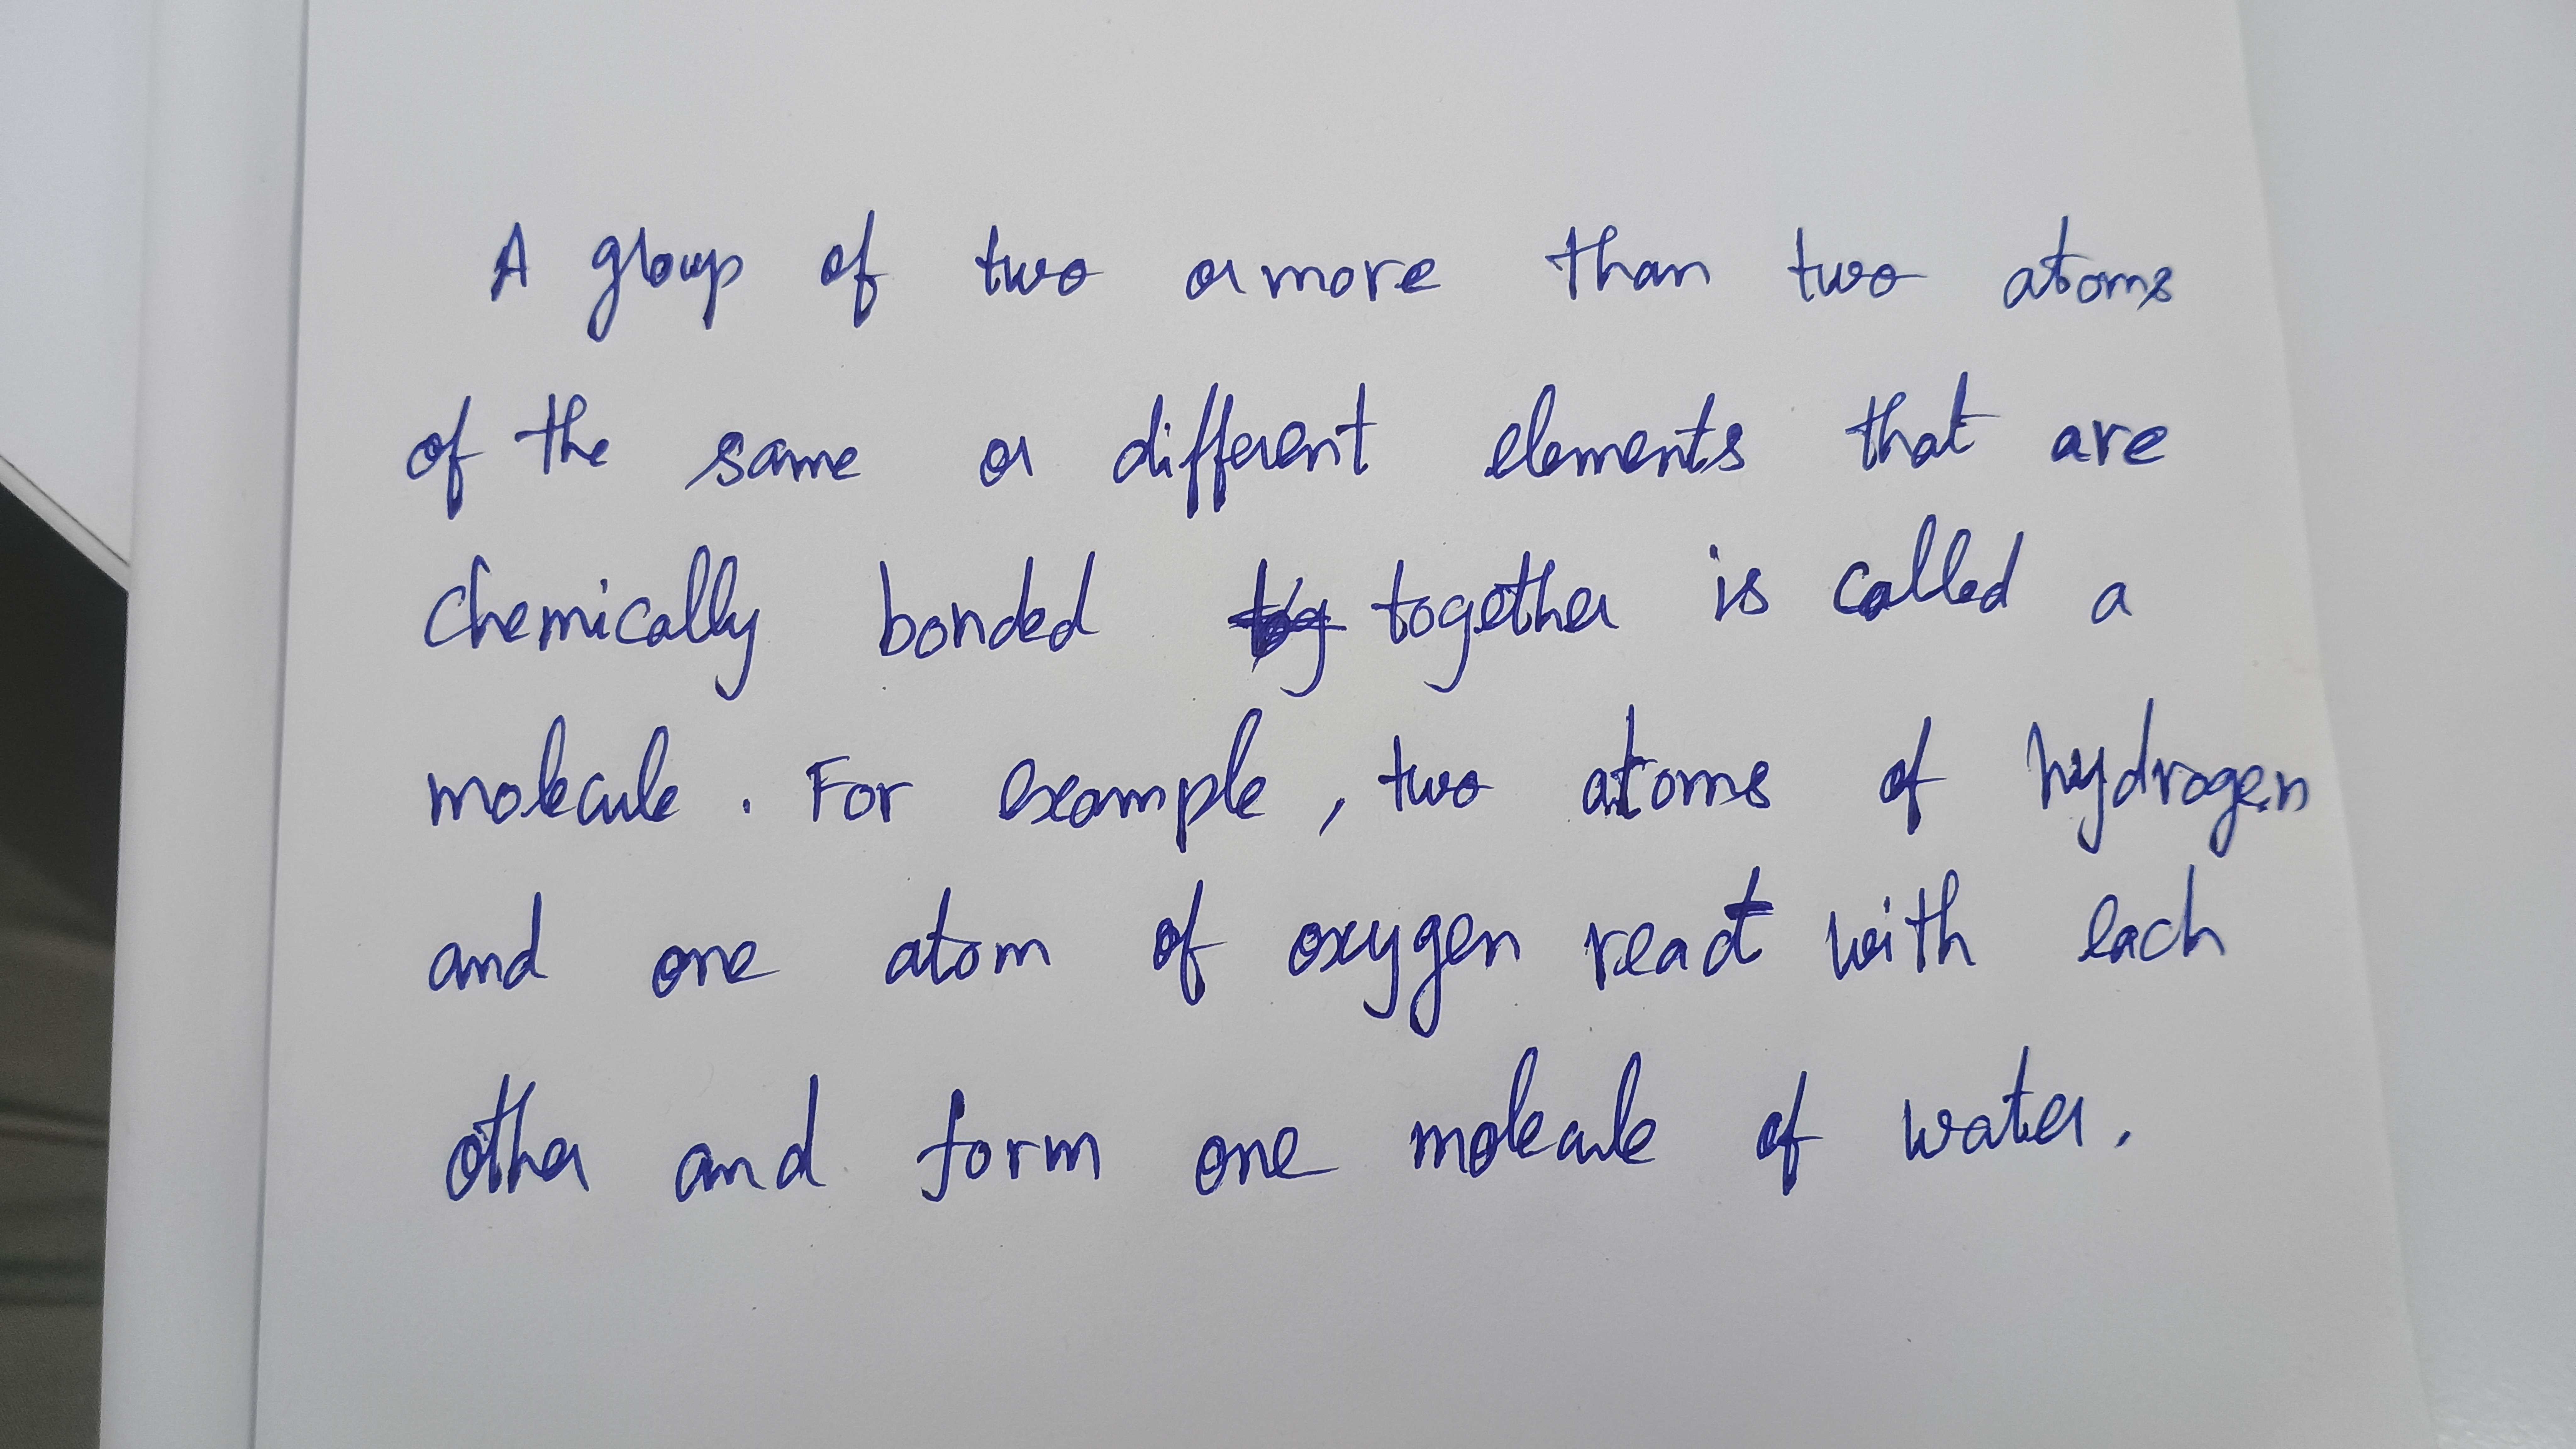 A group of two or more than two atoms
of the same or different elements that are
chemically bonded together is called a
molecule. For example, two atoms of hydrogen
and one atom of oxygen react with each
other and form one molecule of water.